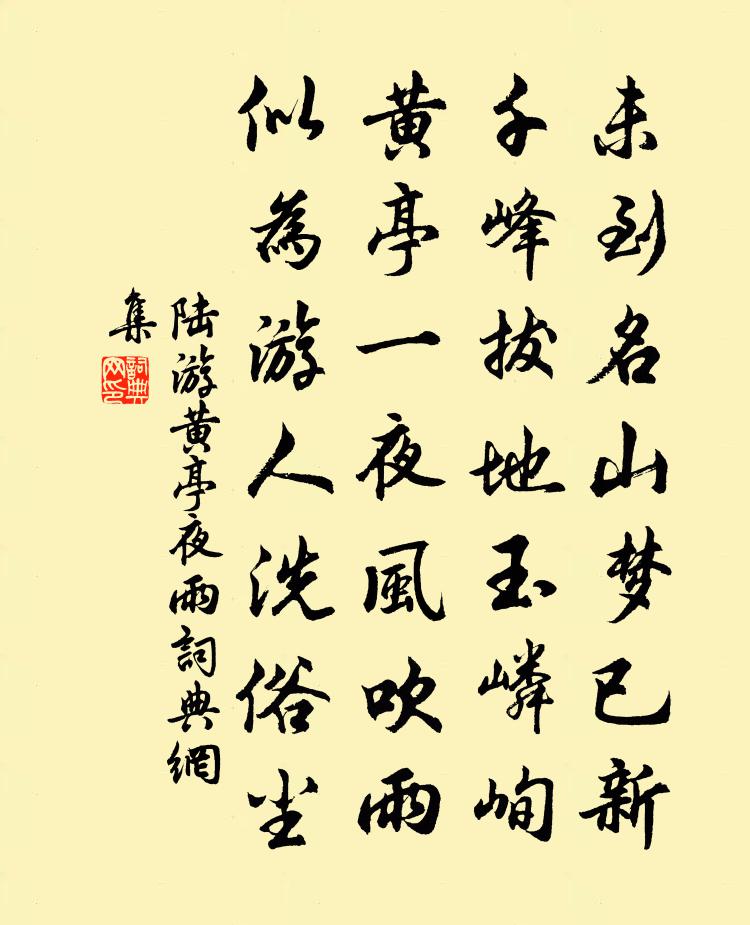 未到名山梦已新
千峰拔地玉嶙峋
黄亭一夜風吹雨
似為游人洗俗尘
陆游黄亭夜雨詞典網
集
詞典
网印